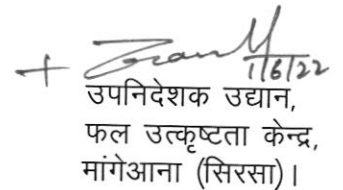 1/6/22
उपनिदेशक उद्यान,
फल उत्कृष्टता केन्द्र,
मांगेआना (सिरसा)।